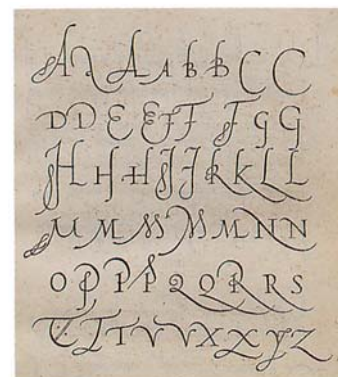 A A A A B B C C
D D E E F F F G G
H H H H I I K K L L
M M M M M N N
O P P P Q Q R R S
T T T V V X X Y Z